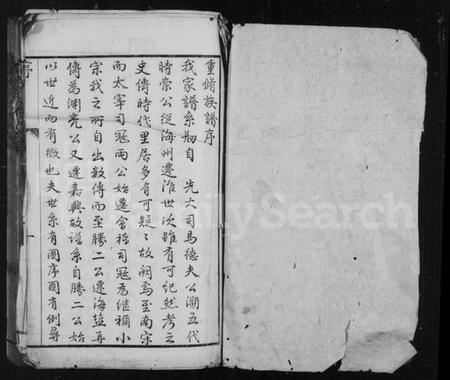 重脩族譜序
我家譜系舠自 先大司馬德夫公溯五代
時崇公從海州遷淮世次雖有可紀然考之
史傳時代里居多有可疑〻故闕焉至南宋
而太宰司寇兩公始遷會稽司寇為継禰小
宗我之所自出数傳而至勝二公遷海盐再
傳為渊亮公又遷嘉興故譜系自勝二公始
以世近而有徵也夫世系有圖序圖有例尋
序
FamilySearch